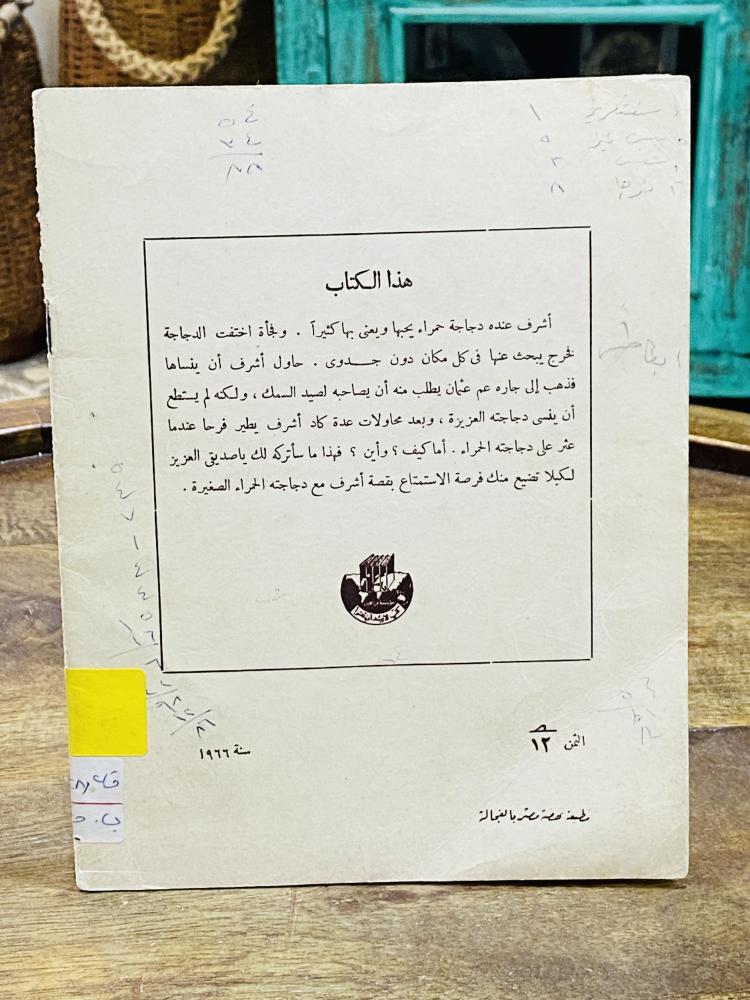 ٥٤
٣٤
٨٨
١
٥
٢
٨
هذا الكتاب
أشرف عنده دجاجة حمراء يحبها ويعنى بها كثيراً . وفجأة اختفت الدجاجة
نفرج يبحث عنها فى كل مكان دون جــدوى . حاول أشرف أن ينساها
فذهب إلى جاره عم عثمان يطلب منه أن يصاحبه لصيد السمك ، ولكنه لم يستطع
أن ينسى دجاجته العزيزة ، وبعد محاولات عدة كاد أشرف يطير فرحا عندما
عثر على دجاجته الحمراء . أما كيف ؟ وأين ؟ فهذا ما سأتركه لك ياصديقى العزيز
لكيلا تضيع منك فرصة الاستمتاع بقصة أشرف مع دجاجته الحمراء الصغيرة .
الثمن ١٢
سنة ١٩٦٦
مطبعة نهضة مصر بالفجالة